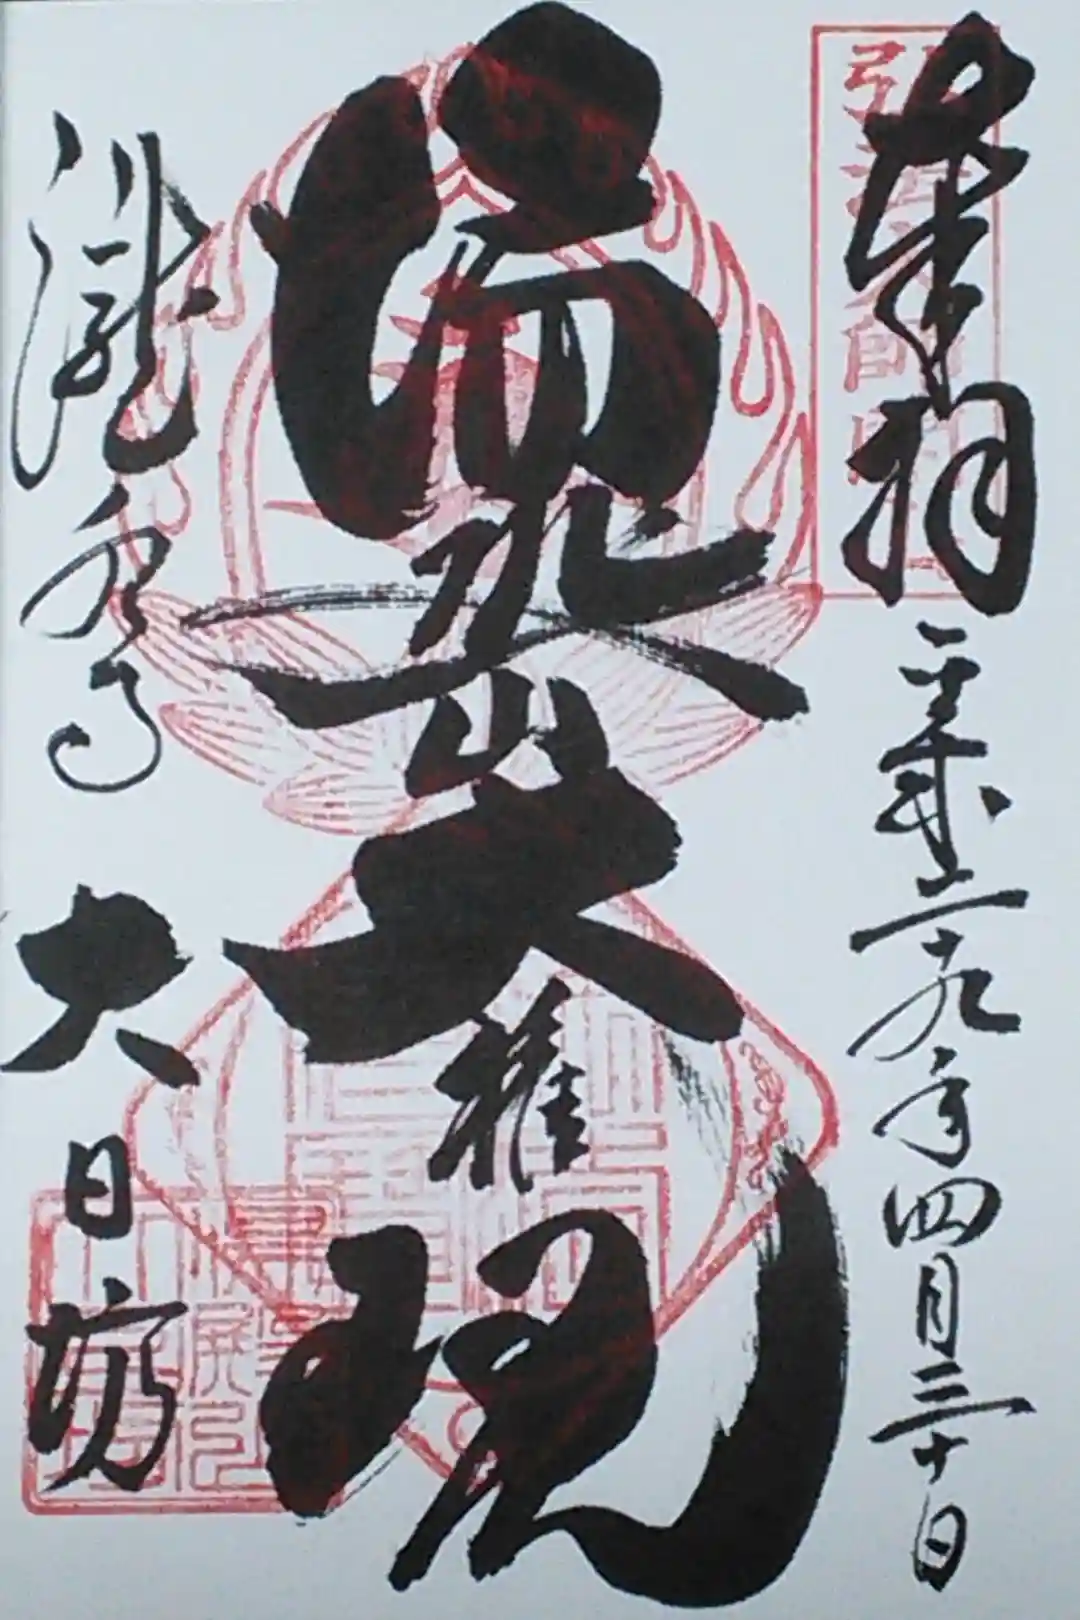 奉拝 平成二十九年四月三十日
湯殿山大権現
瀧水寺 大日坊